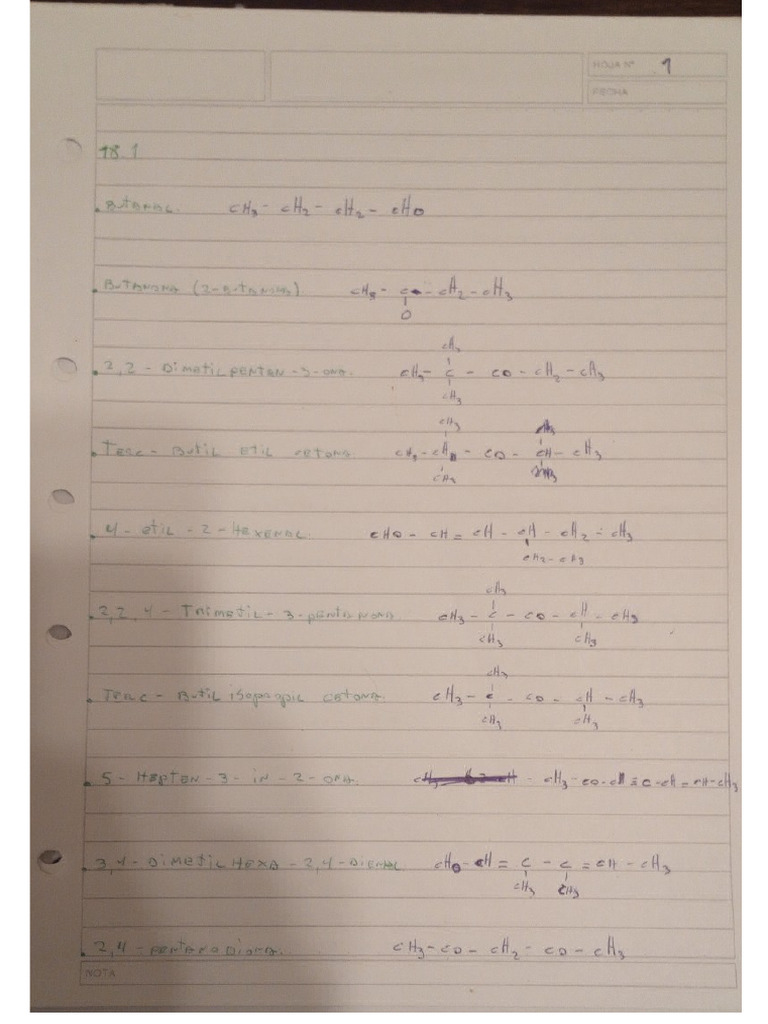 HOJA Nº 1
FECHA
18.1
. Butanal. CH3 - CH2 - CH2 - CHO
. Butanona (2-Butanona). CH3 - C - CH2 - CH3
O
CH3
. 2,2 - Dimetil pentan - 3 - ona. CH3 - C - CO - CH2 - CH3
CH3
CH3
. Terc - Butil etil cetona. CH3 - CH - CO - CH - CH3
CH3
. 4 - etil - 2 - Hexenal. CHO - CH = CH - CH - CH2 - CH3
CH2 - CH3
CH3
. 2,2,4 - Trimetil - 3 - pentanona. CH3 - C - CO - CH - CH3
CH3 CH3
CH3
. Terc - Butil isopropil cetona. CH3 - C - CO - CH - CH3
CH3 CH3
. 5 - Hepten - 3 - in - 2 - ona. - CH3 - CO - C ≡ C - CH = CH - CH3
. 3,4 - Dimetil Hexa - 2,4 - Dienal. CHO - CH = C - C = CH - CH3
CH3 CH3
. 2,4 - pentanodiona. CH3 - CO - CH2 - CO - CH3
NOTA